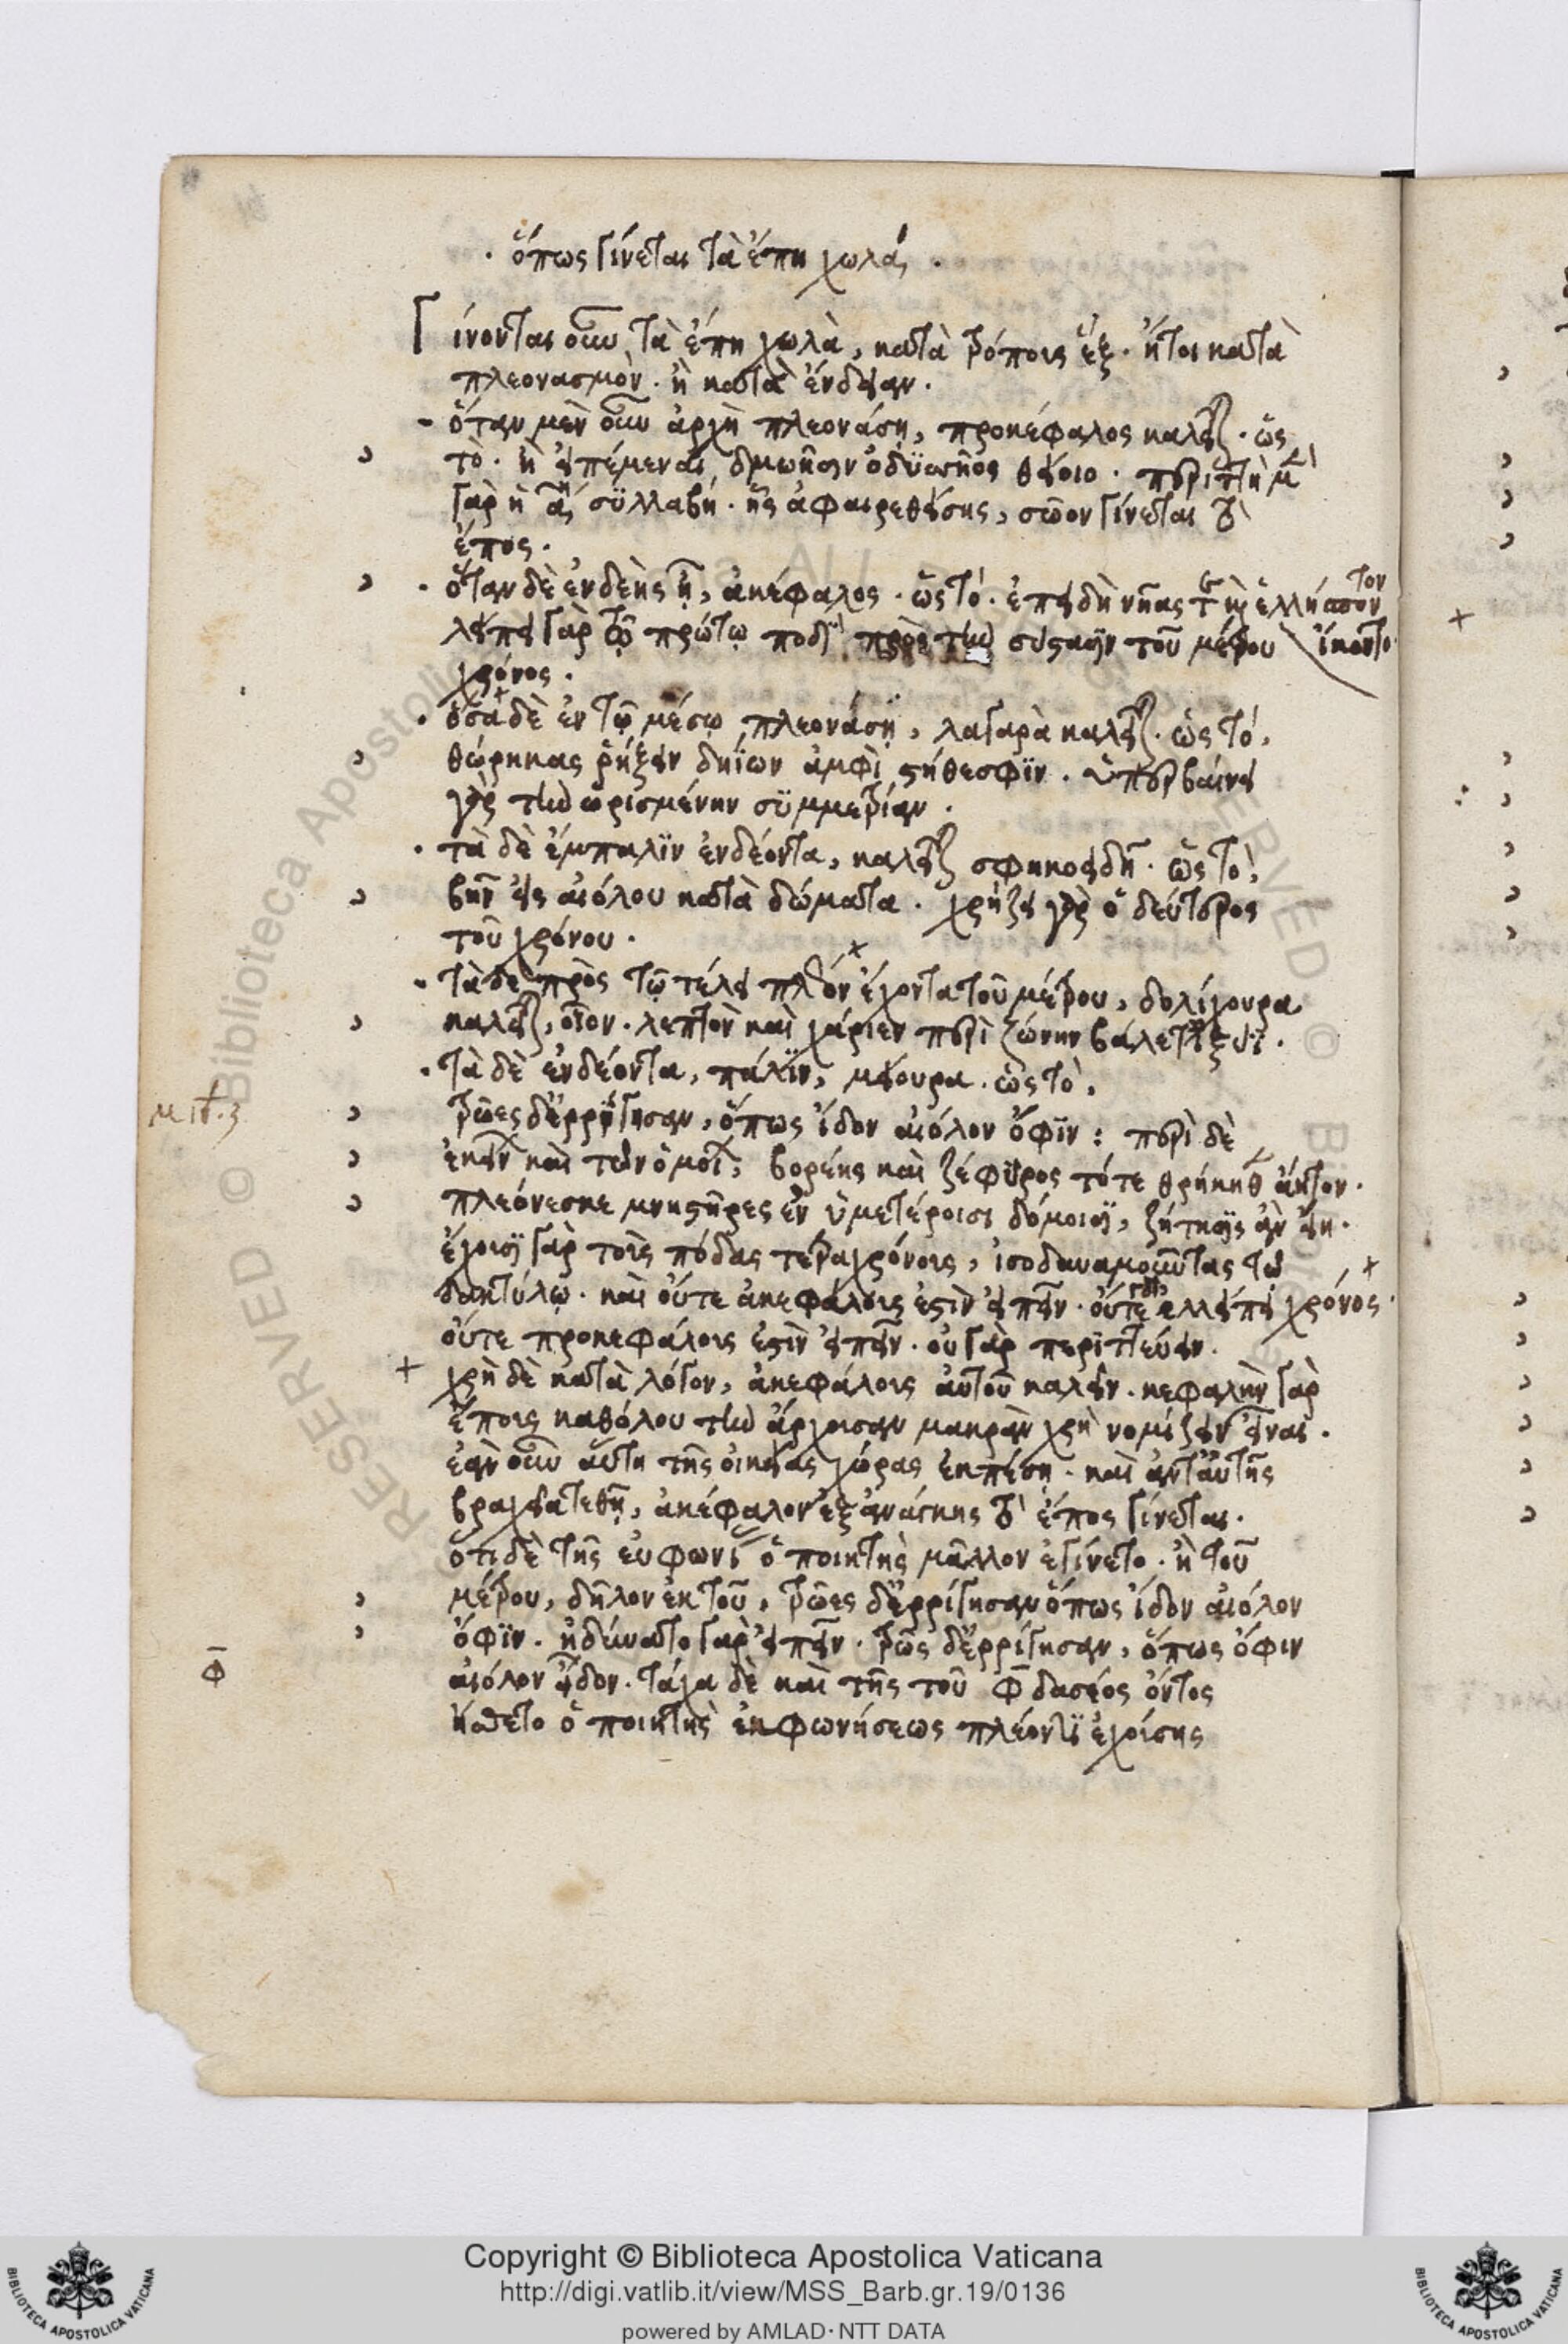 · ὅπως γίνεται τὰ ἔπη χωλά ·
Γίνονται οὖν τὰ ἔπη χωλὰ, κατὰ τρόπους ἕξ · ἤτοι κατὰ
πλεονασμὸν · ἢ κατὰ ἔνδειαν ·
- ὅταν μὲν οὖν ἀρχὴ πλεονάση, προκέφαλος καλεῖται · ὡς
τὸ · ἢ εἰπέμεναι δμωῆσιν ὀδϋσσῆος θείοιο · περιττὴ μὲν
γὰρ ἡ α συλλαβή · ἧς ἀφαιρεθείσης, σῶον γίνεται τὸ
ἔπος ·
· ὅταν δὲ ἐνδεὴς ῆ, ἀκέφαλος · ὡς τό · ἐπειδὴ νῆας τὲ καὶ ἑλλήσποντον
λείπει γὰρ τῶ πρώτω ποδὶ πρὸς τὴν σύστασιν τοῦ μέτρου \ ἵκοντο ·
χρόνος ·
· ὅσα δὲ ἐν τῶ μέσω πλεονάση, λαγαρὰ καλεῖται · ὡς τό,
θώρηκας ῥήξειν δηΐων ἀμφὶ στήθεσφϊν · ὑπερβαίνει
γὰρ τὴν ὡρισμένην συμμετρίαν ·
· τὰ δὲ ἔμπαλϊν ἐνδέοντα, καλεῖται σφηκοειδῆ · ὡς τὸ,
βῆν εἰς αἰόλου κατὰ δώματα · χρήζει γὰρ ὁ δεύτερος
τοῦ χρόνου ·
- τὰ δὲ πρὸς τῶ τέλει πλέον ἔχοντα τοῦ μέτρου, δολίχουρα
καλεῖται, οἷον · λεπτὸν καὶ χάριεν περὶ ζώνην βάλετ' ἰξυῖ ·
· τὰ δὲ ἐνδέοντα, πάλϊν, μείουρα · ὡς τὸ,
τρῶες δ' ἐρρίγησαν, ὅπως ἴδον αἰόλον ὄφϊν : περὶ δὲ
ἐκείνων καὶ τῶν ὁμοίων, βορέης καὶ ζέφυρος τότε θρήκηθεν ἄητον ·
πλεόνεσκε μνηστῆρες ἐν ὑμετέροισι δόμοισϊ, ζήτησις ἂν εἴη ·
ἔχουσϊ γὰρ τοὺς πόδας τετραχρόνους, ἰσοδυναμοῦντας τῶ
δακτύλω · καὶ οὔτε ἀκεφάλους ἐστὶν εἰπεῖν · οὔτε γὰρ ἐλλείπει χρόνος ·
οὔτε προκεφάλους ἐστὶν εἰπεῖν · οὐ γὰρ περιττεύειν ·
+ χρὴ δὲ κατὰ λόγον, ἀκεφάλους αὐτοῦ καλεῖν · κεφαλὴν γὰρ
ἔπους καθόλου τὴν ἄρχουσαν μακρὰν χρὴ νομίζειν εἶναι ·
ἐὰν οὖν αὕτη τῆς οἰκείας χώρας ἐκπέση · καὶ ἀντ' αὐτῆς
βραχεῖα τεθῆ, ἀκέφαλον ἐξ ἀνάγκης τὸ ἔπος γίνεται ·
ὅτι δὲ τῆς εὐφωνίας ὁ ποιητὴς μᾶλλον ἐγίνετο · ἢ τοῦ
μέτρου, δῆλον ἐκ τοῦ, τρῶες δ' ἐρρίγησαν ὅπως ἴδον αἰόλον
ὄφϊν · ἠδύνατο γὰρ εἰπεῖν · τρῶες δ' ἐρρίγησαν, ὅπως ὄφιν
φ
αἰόλον εἶδον · τάχα δὲ καὶ τῆς τοῦ φ δασέος ὄντος
ἥδετο ὁ ποιητὴς ἐκφωνήσεως πλέον τϊ ἐχούσης
Copyright © Biblioteca Apostolica Vaticana
http://digi.vatlib.it/view/MSS_Barb.gr.19/0136
powered by AMLAD·NTT DATA